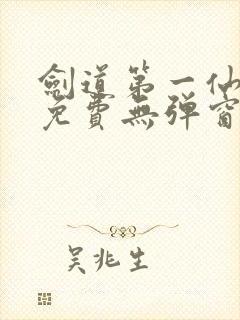 劍道第一仙
免費無彈窗
吳兆生